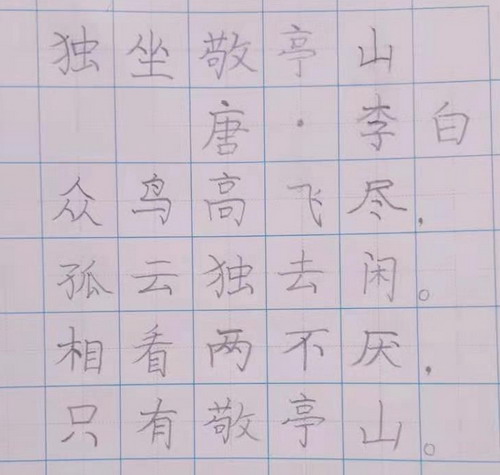 独坐敬亭山
唐·李白
众鸟高飞尽,
孤云独去闲。
相看两不厌,
只有敬亭山。